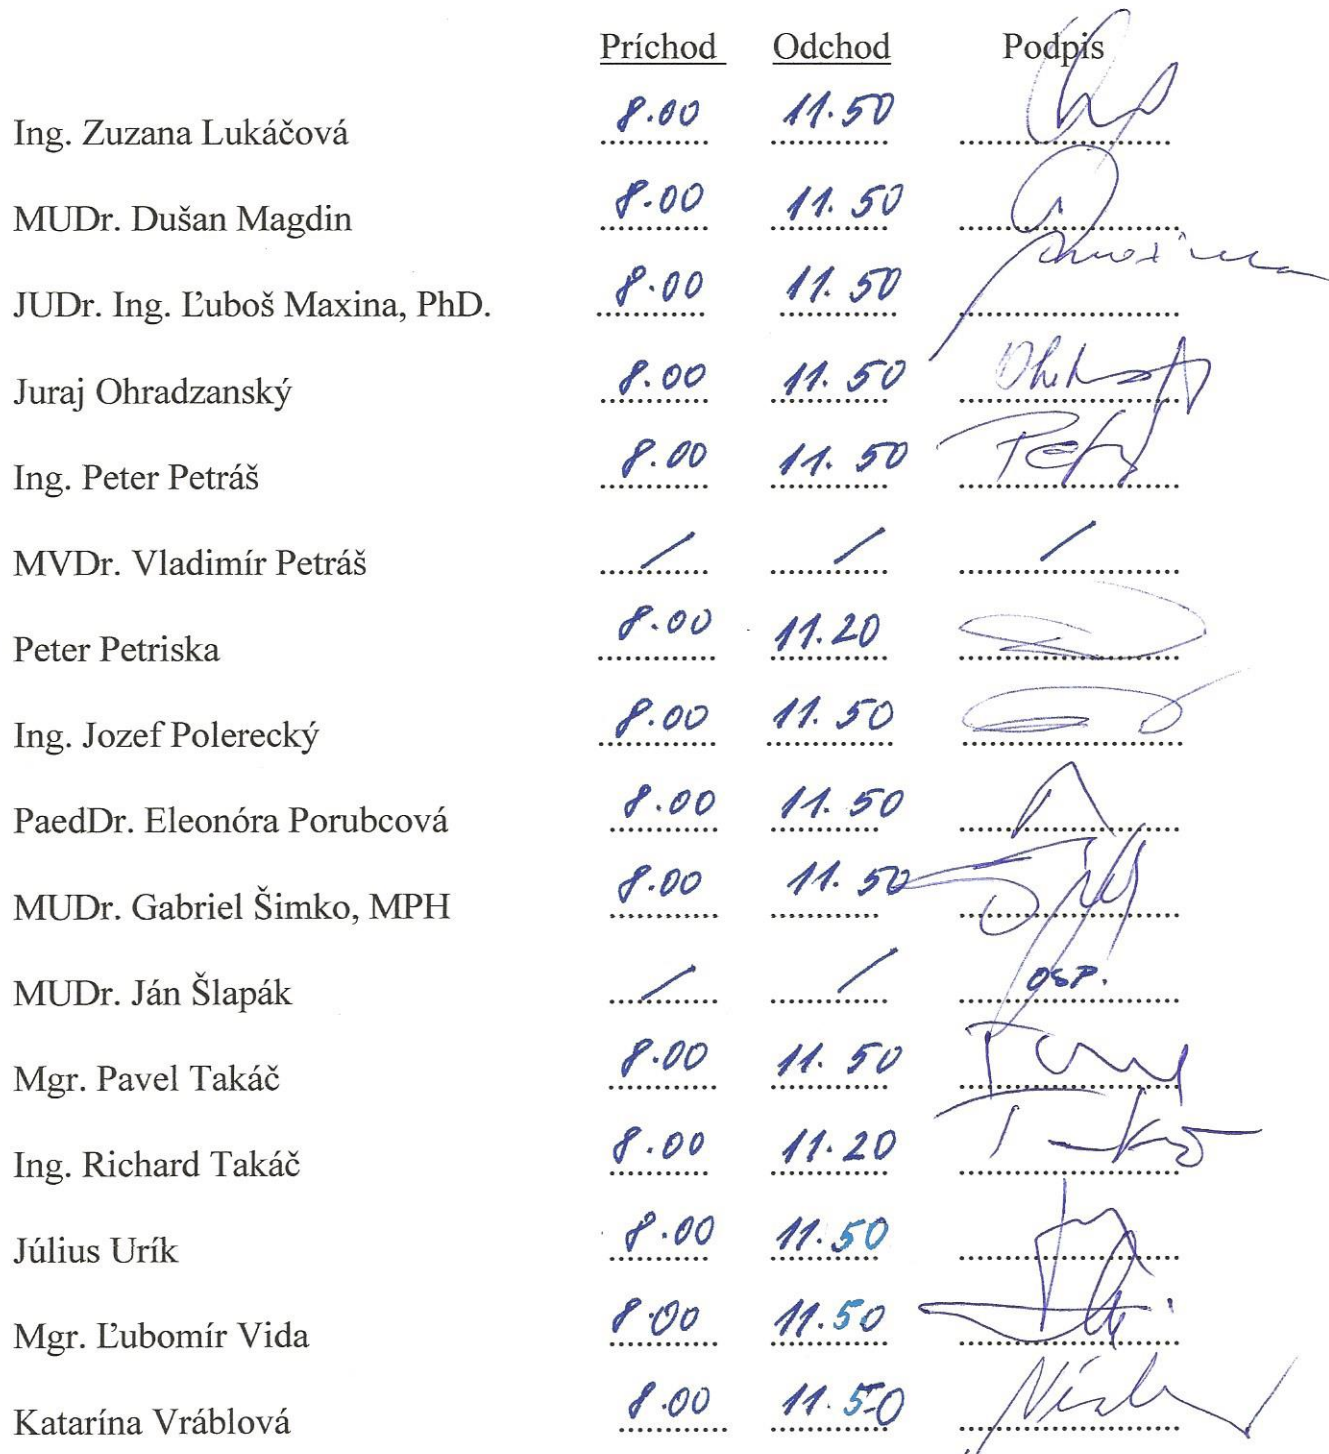 Príchod Odchod Podpis
Ing. Zuzana Lukáčová 8.00 11.50
MUDr. Dušan Magdin 8.00 11.50
JUDr. Ing. Ľuboš Maxina, PhD. 8.00 11.50
Juraj Ohradzanský 8.00 11.50
Ing. Peter Petráš 8.00 11.50
MVDr. Vladimír Petráš / / /
Peter Petriska 8.00 11.20
Ing. Jozef Polerecký 8.00 11.50
PaedDr. Eleonóra Porubcová 8.00 11.50
MUDr. Gabriel Šimko, MPH 8.00 11.50
MUDr. Ján Šlapák / / OSP.
Mgr. Pavel Takáč 8.00 11.50
Ing. Richard Takáč 8.00 11.20
Július Urík 8.00 11.50
Mgr. Ľubomír Vida 8.00 11.50
Katarína Vráblová 8.00 11.50